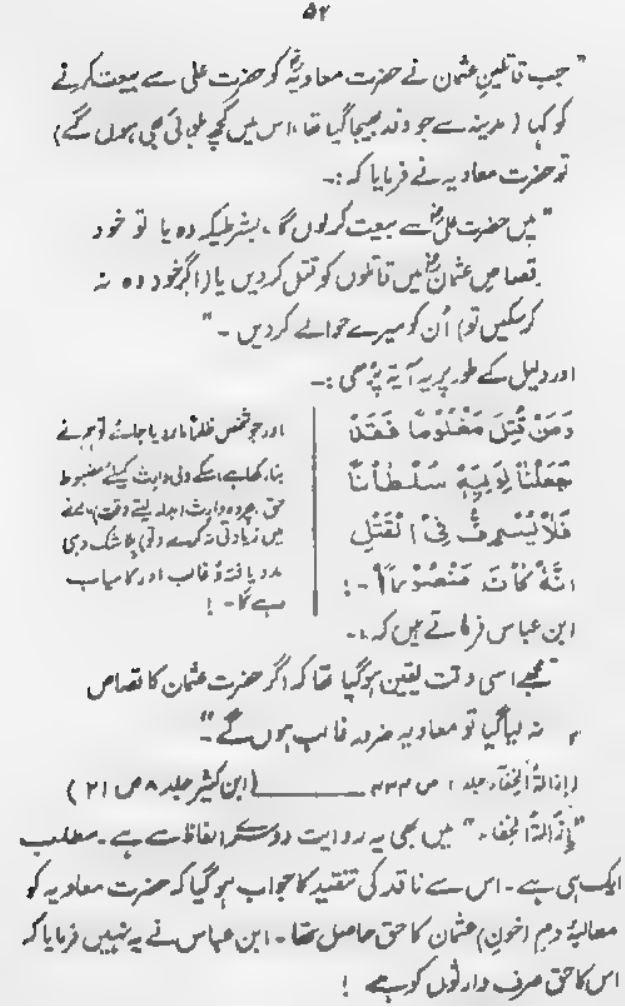 ۵۲
"جب قاتلینِ عثمان نے حضرت معاویہؓ کو حضرت علی سے بیعت کرنے
کو کہا (مدینہ سے جو وفد بھیجا گیا تھا، اس میں کچھ بلوائی بھی ہوں گے)
تو حضرت معاویہ نے فرمایا کہ :۔
"میں حضرت علیؓ سے بیعت کرلوں گا، بشرطیکہ وہ یا تو خود
قصاصِ عثمانؓ میں قاتلوں کو قتل کردیں یا (اگر خود وہ نہ
کرسکیں تو) اُن کو میرے حوالے کردیں ۔"
اور دلیل کے طور پر یہ آیۃ پڑھی :۔
وَمَنْ قُتِلَ مَظْلُوْمًا فَقَدْ
جَعَلْنَا لِوَلِيِّهٖ سُلْطٰانًا
فَلَا يُسْرِفْ فِي الْقَتْلِ
اِنَّهٗ كَانَ مَنْصُوْرًا ۔!
اور جو شخص ظلماً مار دیا جائے تو ہم نے
بنا رکھا ہے اسکے ولی وارث کیلئے مضبوط
حق ۔ پھر وہ وارث بدلہ لیتے وقت
میں زیادتی نہ کرے (تو) بلا شک وہی
مدد یافتہ و غالب اور کامیاب
رہے گا ۔ !
ابن عباس فرماتے ہیں کہ :۔
"مجھے اسی وقت یقین ہوگیا تھا کہ اگر حضرت عثمان کا قصاص
نہ لیا گیا تو معاویہ ضرور غالب ہوں گے"۔
(ازالۃ الخفاء جلد ۱ ص ۴۳۴ ــــــــ (ابن کثیر جلد ۸ ص ۲۱)
"اِزَالۃُ الخِفَاء" میں بھی یہ روایت دوسرے الفاظ سے ہے ۔ مطلب
ایک ہی ہے ۔ اس سے ناقد کی تنقید کا جواب ہوگیا کہ حضرت معاویہ کو
مطالبۂ دم (خون) عثمان کا حق حاصل تھا ۔ ابن عباس نے یہ نہیں فرمایا کہ
اس کا حق صرف وارثوں کو ہے !